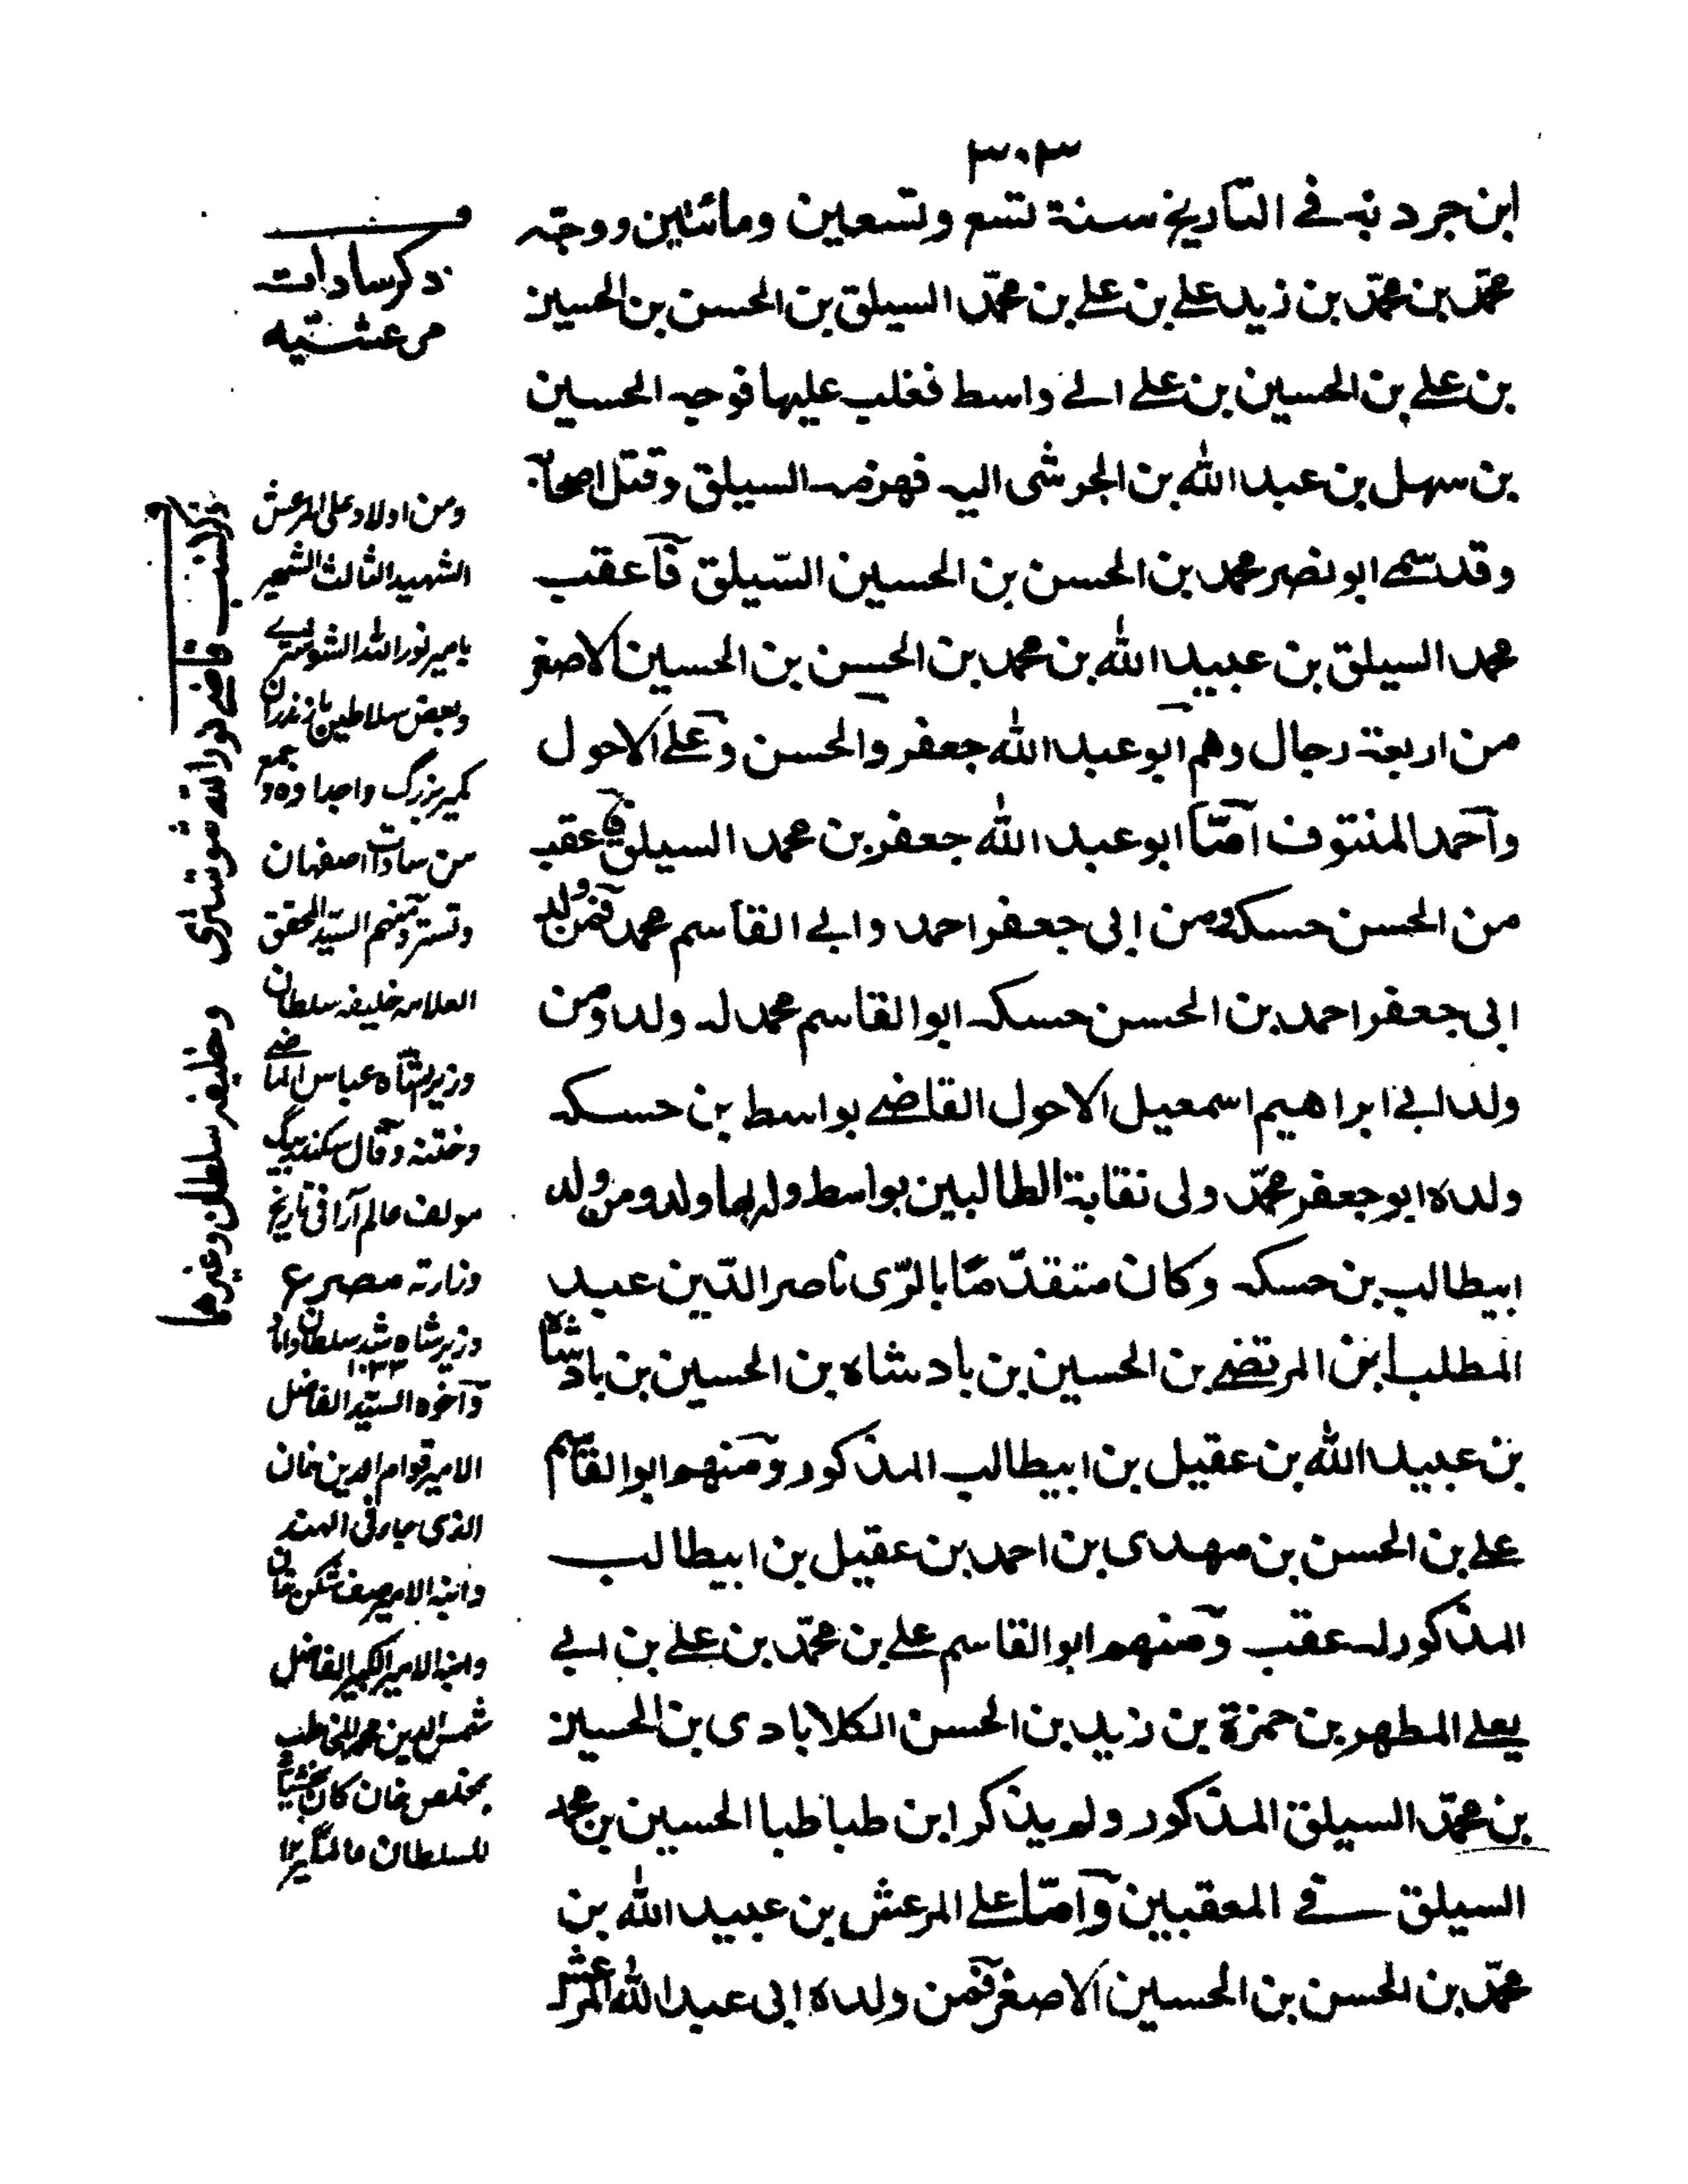 ٣٠٣
ابن جرد نبه في التاريخ سنة تسع وتسعين ومائتين ووجّه
محمّد بن محمّد بن زيد علي بن علي بن محمّد السيلق بن الحسن بن الحسين
بن علي بن الحسين بن علي الى واسط فغلب عليها فوجه الحسين
بن سهل بن عبد الله بن الجرشى اليه فهزمه السيلق وقتل اصحابه
وقد سمى ابو نصر محمد بن الحسن بن الحسين السّيلق فآعقب
محمد السيلق بن عبيد الله بن محمد بن الحسن بن الحسين الاصغر
من اربعة رجال وهم ابو عبد الله جعفر والحسن وعلي الاحول
وآحمد المنتوف آمّا ابو عبد الله جعفر بن محمد السيلق فاعقب
من الحسن حسكه ومن ابى جعفر احمد وابي القاسم محمد فمن ولد
ابى جعفر احمد بن الحسن حسكه ابو القاسم محمد له ولد ومن
ولد ابي ابراهيم اسمعيل الاحول القاضي بواسط بن حسكه
ولده ابو جعفر محمّد ولى نقابة الطالبين بواسط وله بها ولد ومن ولد
ابيطالب بن حسكه وكان متقدّمًا بالرّى ناصر الدّين عبد
المطلب ابن المرتضي بن الحسين بن بادشاه بن الحسين بن بادشاه
بن عبيد الله بن عقيل بن ابيطالب المذكور ومنهم ابو القاسم
علي بن الحسن بن مهدى بن احمد بن عقيل بن ابيطالب
المذكور له عقب ومنهم ابو القاسم علي بن محمّد بن علي بن ابي
يعلي المطهر بن حمزة بن زيد بن الحسن الكلابادى بن الحسين
بن محمّد السيلق المذكور ولم يذكر ابن طباطبا الحسين بن محمد
السيلق في المعقبين وآمّا علي المرعش بن عبيد الله بن
محمّد بن الحسن بن الحسين الاصغر فمن ولده ابى عبد الله المرعش
ذكر سادات
مرعشيه
ومن اولاد على المرعش
الشهيد الثالث الشهير
بامير نور الله الشوشتري
وبعض سلاطين مازندران
كمير بزرگ واجداده وجمع
من سادات اصفهان
وتستر ومنهم السيّد المحقق
العلامه خليفه سلطان
وزير شاه عباس الماضي
وختنه وقال سكندر بيگ
مولف عالم آرا فى تاريخ
وزارته مصرع
وزير شاه شد سلطان داماد
١٠٣٣
وآخوه السيّد الفاضل
الامير قوام الدين خان
الذى جاء فى الهند
وابنه الامير صف شكن خان
وابنه الامير الكبير الفاضل
شمس الدين محمد المخاطب
بمخلص خان كان بخشيا
للسلطان عالمگير ١٢
ذكر نسب قاضي نور الله شوشترى وخليفه سلطان وغيرها